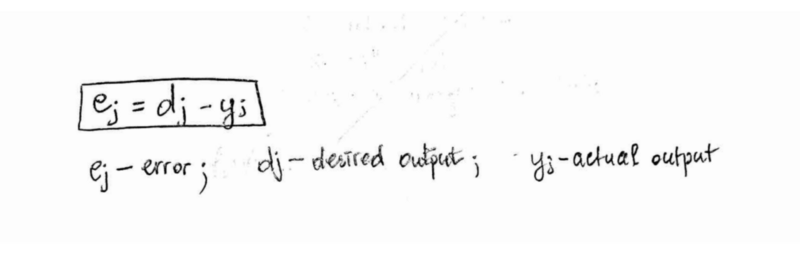 ej = dj - yj
ej - error; dj - desired output; yj - actual output